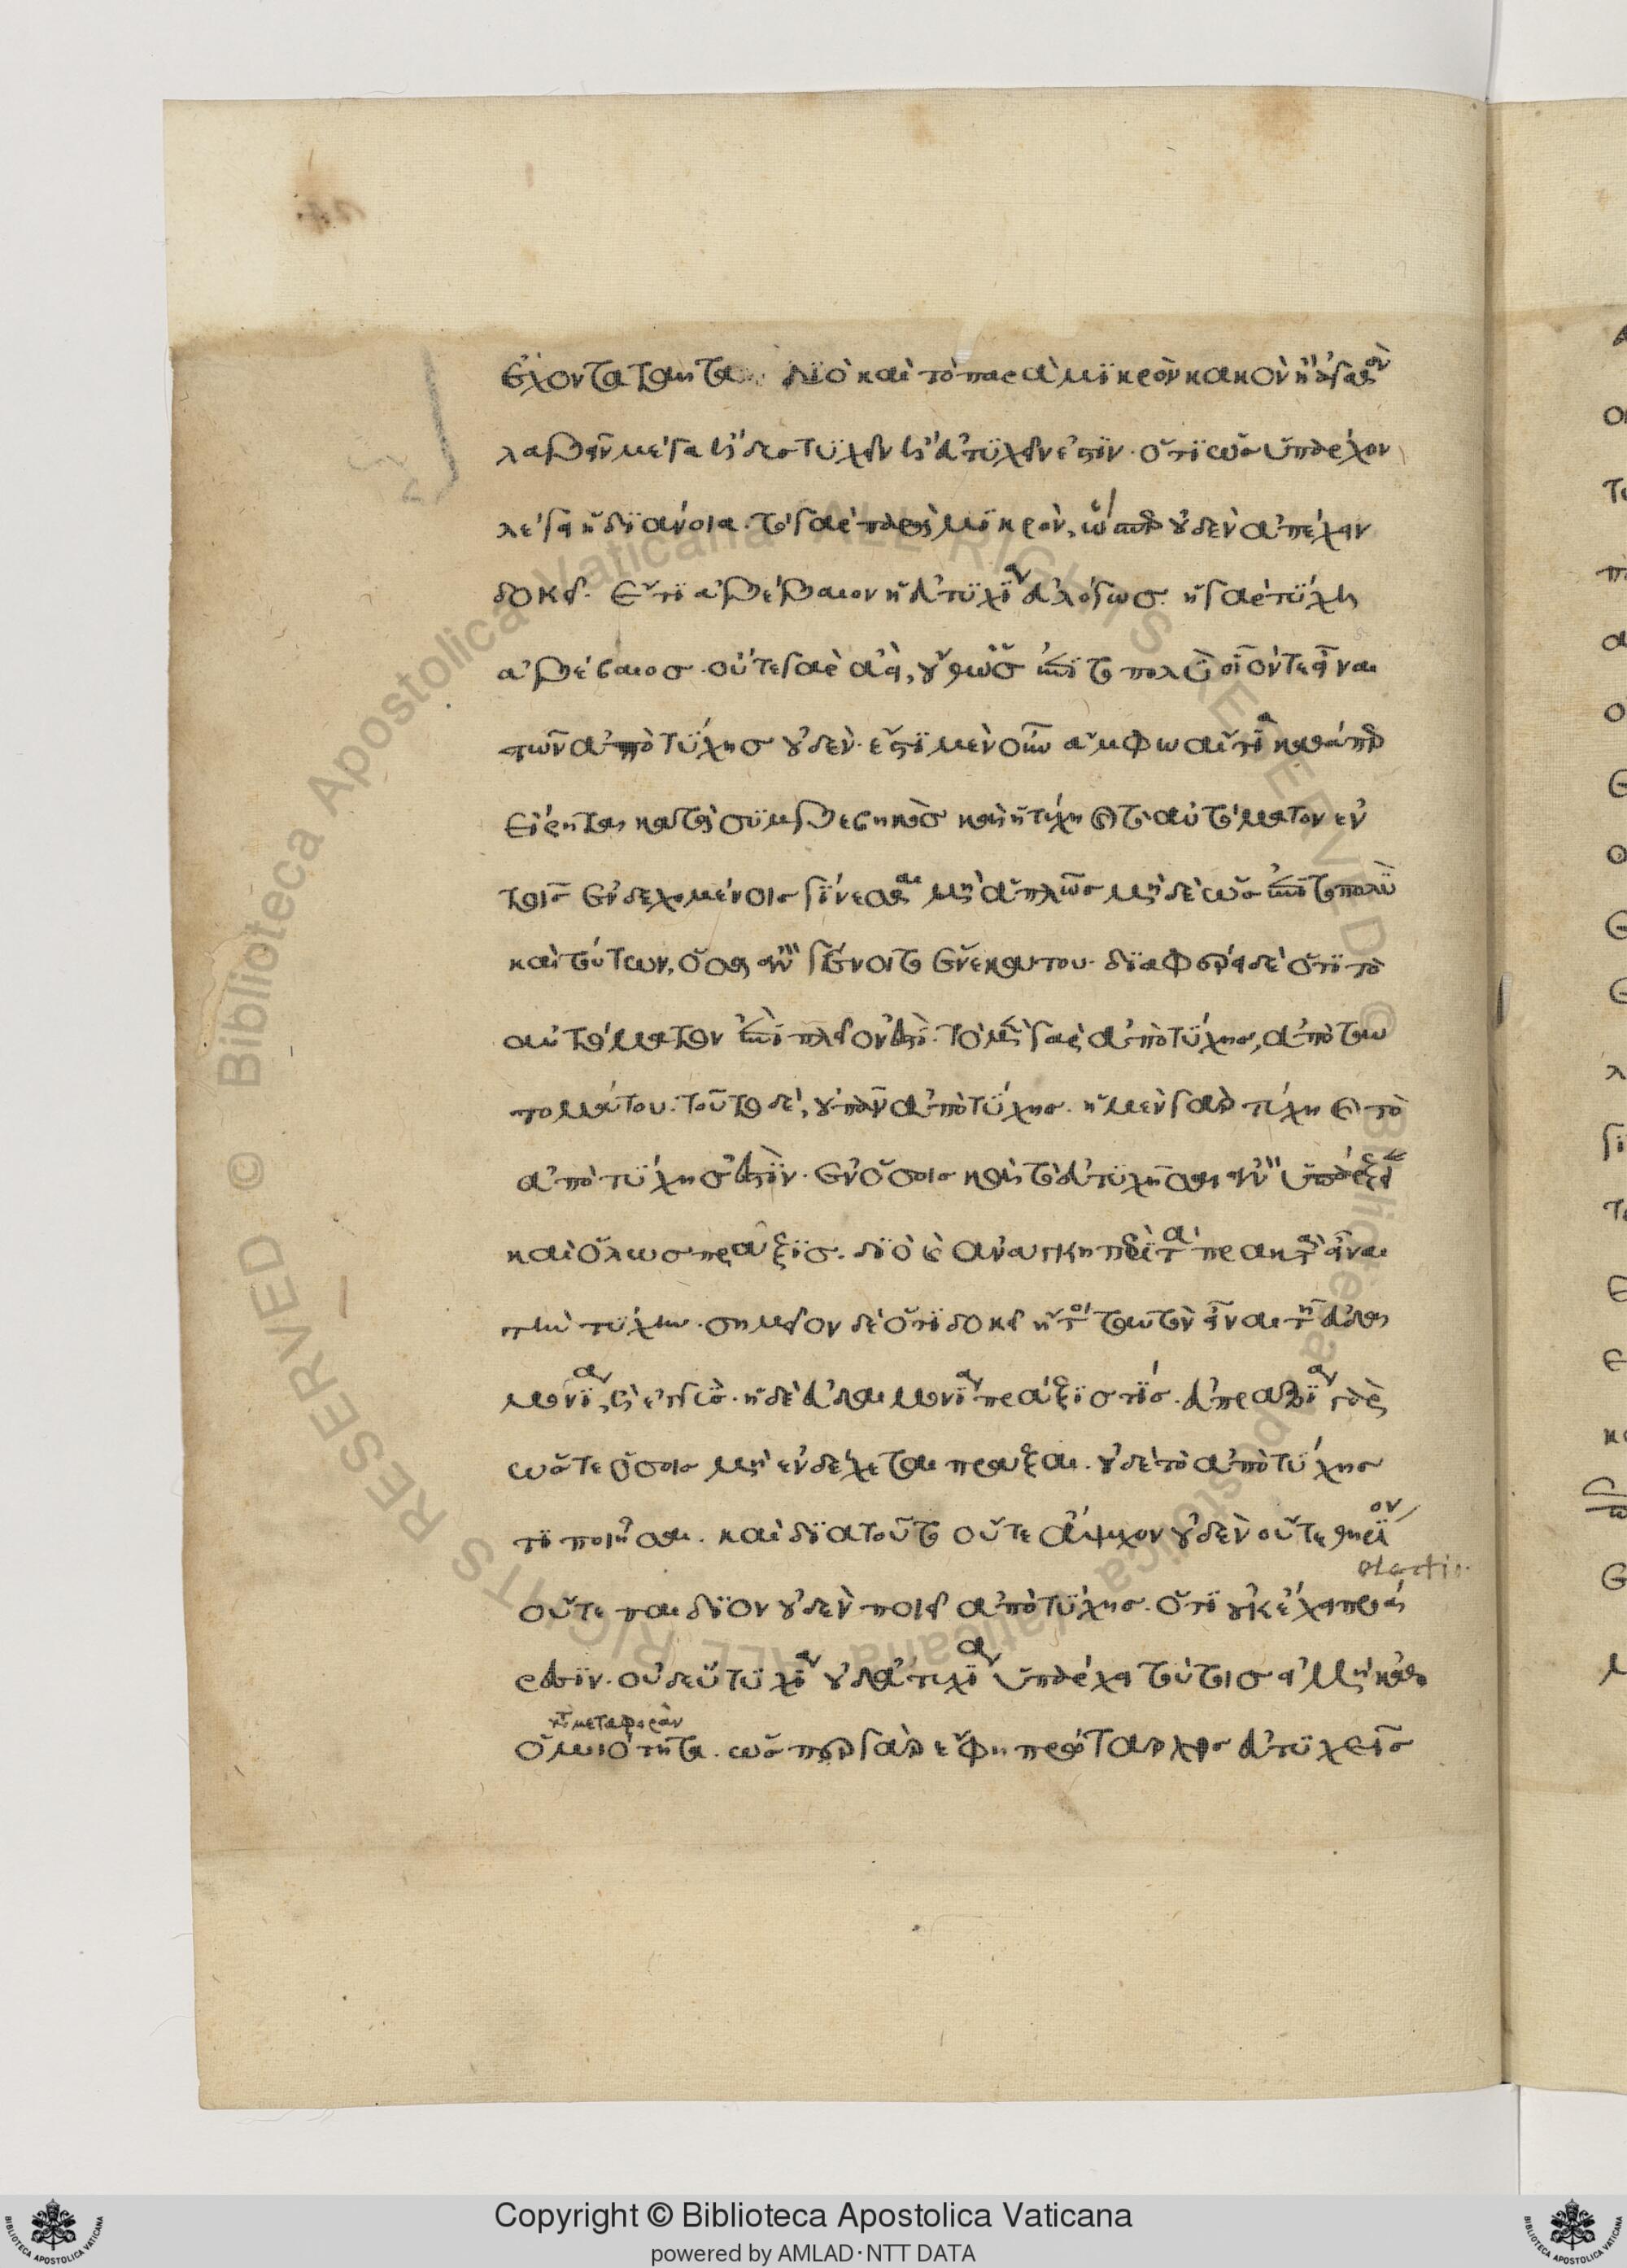 ἔχοντα ταῦτα. διὸ καὶ τὸ παρὰ μικρὸν κακὸν ἢ ἀγαθὸν
λαβεῖν μέγα ἢ δυστυχεῖν ἢ εὐτυχεῖν ἐστίν. ὅτι ὡς ὑπάρχον
λέγει ἡ διάνοια. τὸ γὰρ παρὰ μικρὸν, ὥσπερ οὐδὲν ἀπέχειν
δοκεῖ. ἔτι ἀβέβαιον ἡ εὐτυχία εὐλόγως. ἡ γὰρ τύχη
ἀβέβαιος. οὔτε γὰρ ἀεὶ, οὔθ' ὡς ἐπὶ τὸ πολὺ οἷόν τε εἶναι
τῶν ἀπὸ τύχης οὐδέν. ἔστι μὲν οὖν ἄμφω αἴτια καθάπερ
εἴρηται κατὰ συμβεβηκὸς καὶ ἡ τύχη καὶ τὸ αὐτόματον ἐν
τοῖς ἐνδεχομένοις γίνεσθαι μὴ ἁπλῶς μηδὲ ὡς ἐπὶ τὸ πολὺ
καὶ τούτων, ὅσα ἂν γένοιτο ἕνεκά του. διαφέρει δὲ ὅτι τὸ
αὐτόματον ἐπὶ πλεῖόν ἐστι. τὸ μὲν γὰρ ἀπὸ τύχης, ἀπὸ ταυ
τομάτου. τοῦτο δὲ, οὐ πᾶν ἀπὸ τύχης. ἡ μὲν γὰρ τύχη καὶ τὸ
ἀπὸ τύχης ἐστὶν. ἐν ὅσοις καὶ τὸ εὐτυχῆσαι ἂν ὑπάρξειε
καὶ ὅλως πρᾶξις. διὸ καὶ ἀνάγκη περὶ τὰ πρακτὰ εἶναι
τὴν τύχην. σημεῖον δὲ ὅτι δοκεῖ ἤτοι ταυτὸν εἶναι τῇ εὐδαι
μονίᾳ, ἢ ἐγγύς. ἡ δὲ εὐδαιμονία πρᾶξις τίς. εὐπραξία γὰρ
ὥστε ὅσοις μὴ ἐνδέχεται πρᾶξαι. οὐδὲ τὸ ἀπὸ τύχης
τι ποιῆσαι. καὶ διὰ τοῦτο οὔτε ἄψυχον οὐδὲν οὔτε θηρίον
electio
οὔτε παιδίον οὐδὲν ποιεῖ ἀπὸ τύχης. ὅτι οὐκ ἔχει προαί
ρεσιν. οὐδ' εὐτυχία οὐδ' ἀτυχία ὑπάρχει τούτοις εἰ μὴ καθ'
κατὰ μεταφορὰν
ὁμοιότητα. ὥσπερ γὰρ ἔφη πρώταρχος εὐτυχεῖς